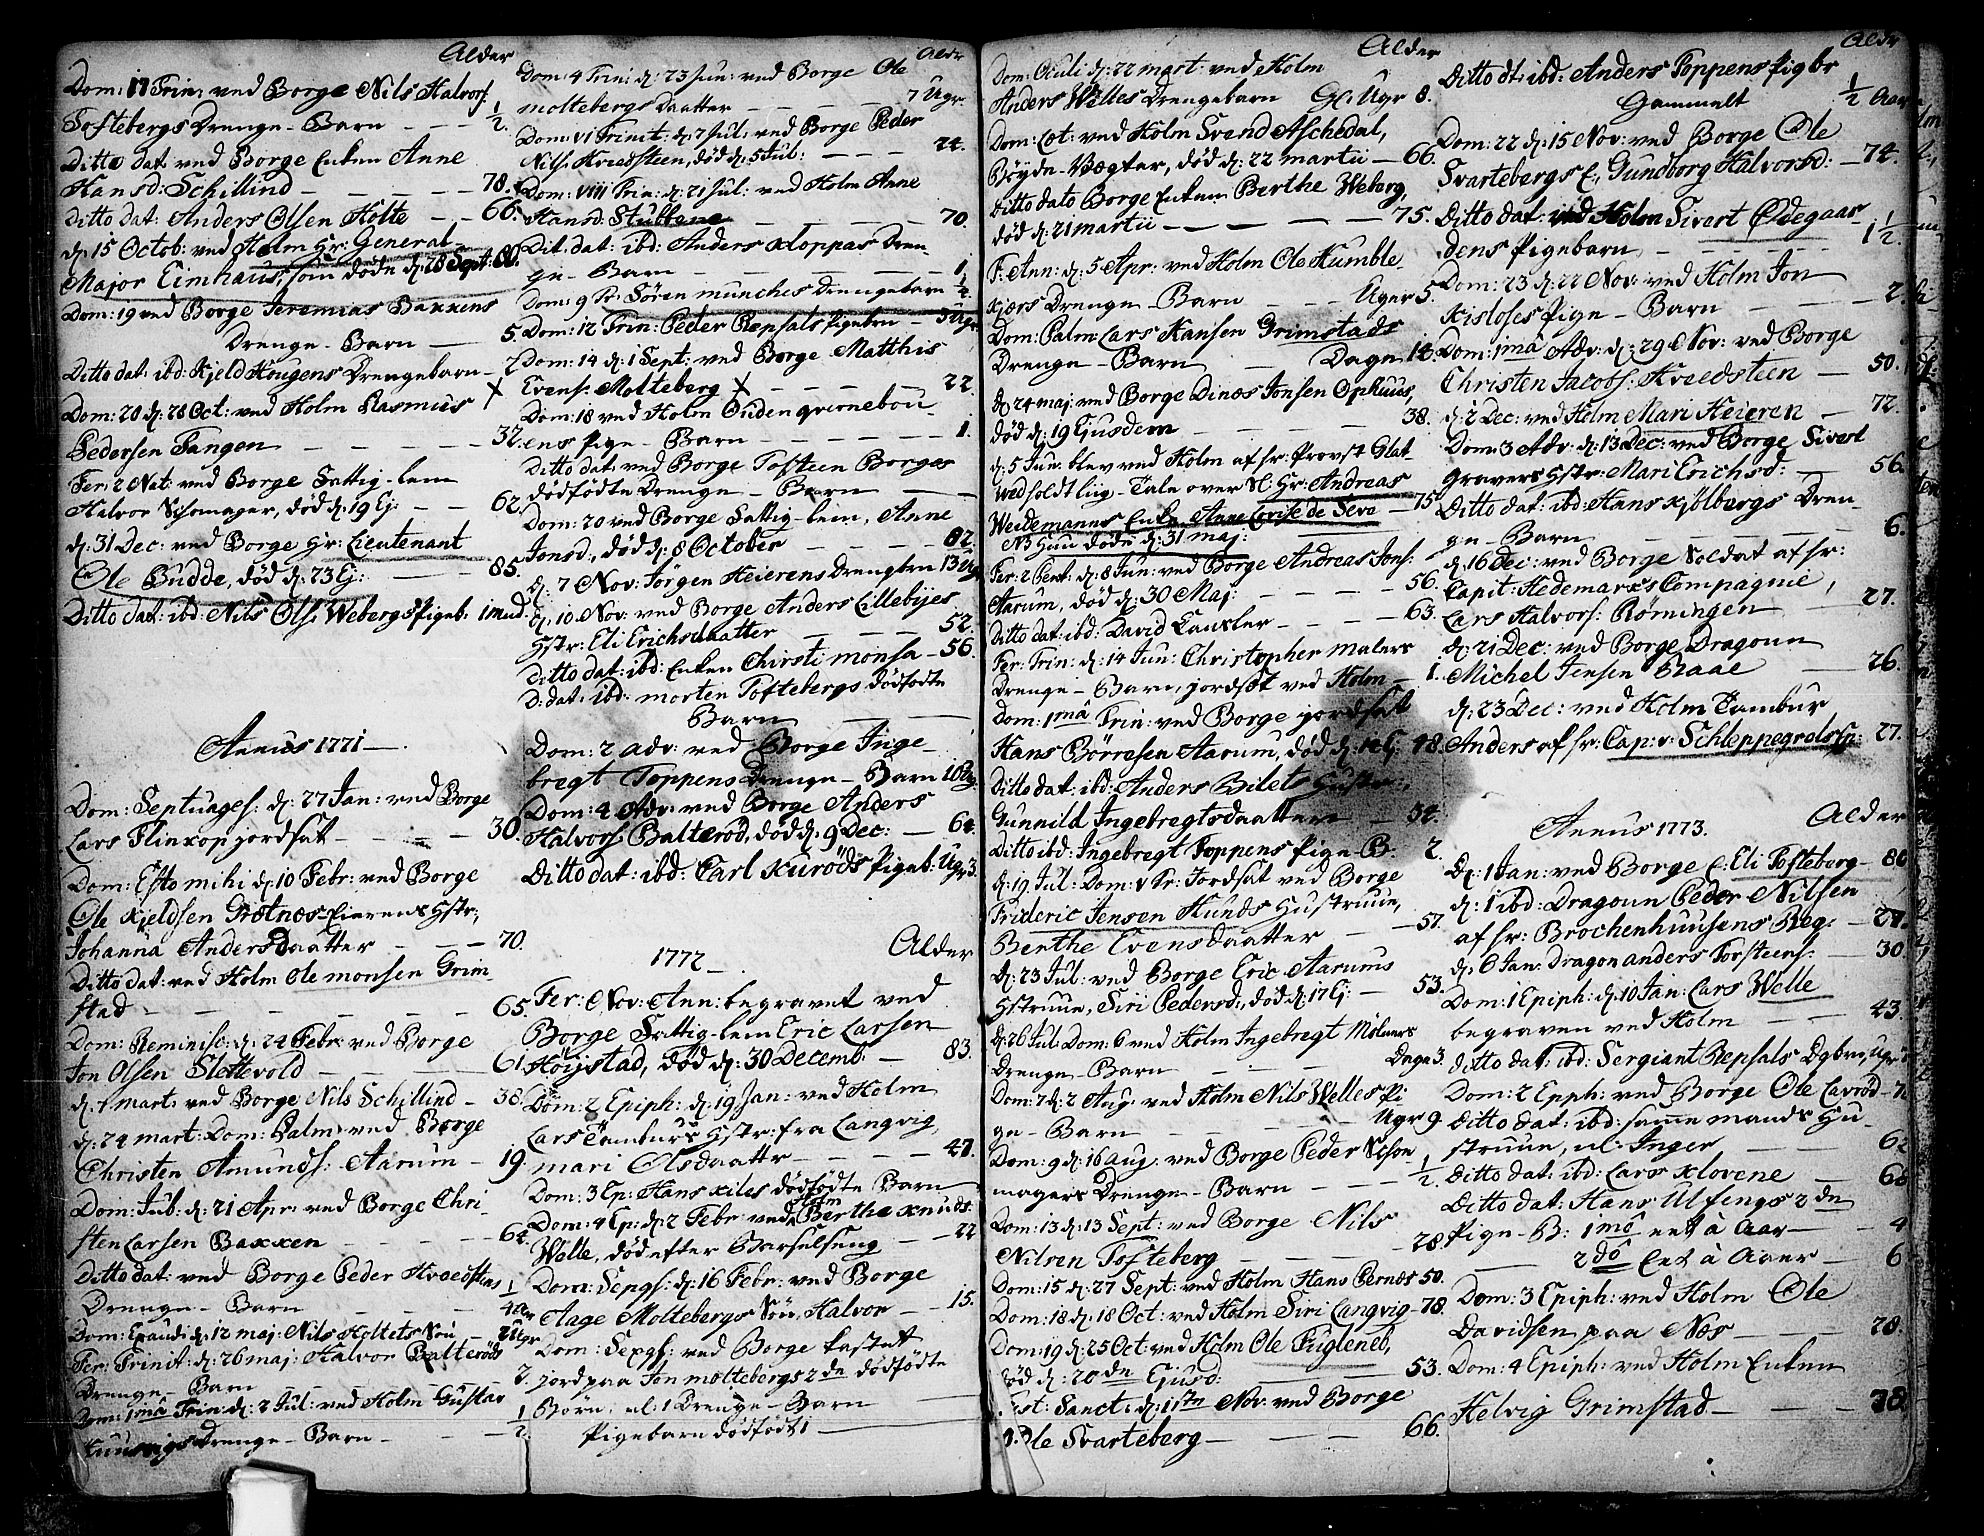 Alder
Dom: 17 Trin: ved Borge Nils Halvors:
Toftebergs Drenge-Barn - - - 1/2.
Ditto dat: ved Borge Enken Anne
Hansd: Schillind - - - - 78.
Ditto dat: Anders Olsen Holte - - 66.
d: 15 Octob: ved Holm Hr: General-
Major Eimhaus, som døde d: 28 Sept: 80.
Dom: 19 ved Borge Jeremias Bakkens
Drenge-Barn - 5.
Ditto dat: ibd: Kjeld Hougens Drengebarn - 2
Dom: 20 d: 28 Oct: ved Holm Rasmus
Pedersen Tangen - - - - 32.
Fer: 2 Nat: ved Borge Fattig-lem
Halvor Schomager, død d: 19 Ej: - - 62.
d: 31 Dec: ved Borge Hr: Lieutenant
Ole Budde, død d: 23 Ej: - - 85.
Ditto dat: ibd: Nils Ols: Webergs Pigeb: 1 mnd.
Annus 1771 -
Dom: Septuages: d: 27 Jan: ved Borge
Lars Flinkop jordsat - - - - 30.
Dom: Esto mihi d: 10 Febr: ved Borge
Ole Kjeldsen Grøtnes Eierens Hstr:,
Johanna Andersdaatter - - - 70.
Ditto dat: ved Holm Ole Monsen Grim-
stad - - - - - - 65.
Dom: Reminisc: d: 24 Febr: ved Borge
Jon Olsen Slettevold - - - 61.
d: 1 mart: ved Borge Nils Schillind - 38.
d: 24 mart: Dom: Palm: ved Borge
Christen Amunds: Aarum - 19.
Dom: Jub: d: 21 Apr: ved Borge Chri-
sten Larsen Bakken - - - 64.
Ditto dat: ved Borge Peder Kvedstens
Drenge-Barn - - - - 1/2
Dom: Exaudi d: 12 maj: Nils Holtets Søn -
Fer: Trinit: d: 26 maj: Halvor Balterøds
Drenge-Barn - - - 2.
Dom: 1mâ Trin: d: 2 Jul: ved Holm Gustav
Drenge-Barn - - - 1/2.
Aldr
Dom: 4 Trin: d: 23 Jun: ved Borge Ole
moltebergs Daatter - - - - 7 Ugr.
Dom: VI Trinit: d: 7 Jul: ved Borge Peder
Nils: Kvedsteen, død d: 5 Jul: - - - 24.
Dom: VIII Trin: d: 21 Jul: ved Holm Anne
Hansd: Stubbene - - - - 70.
Dit: dat: ibd: Anders Kloppas Dren-
ge-Barn - - - - - - 1.
Dom: 9 Tr: Søren munches Drengebarn 1/2
Dom: 12 Trin: Peder Repsals Pigebrn - 3 Ugr
Dom: 14 d: 1 Sept: ved Borge Matthis
Evens: Molteberg - - - - 22.
Dom: 18 ved Holm Ouden qvernebou-
ens Pige-Barn - - - - - 1.
Ditto dat: ved Borge Tosteen Borges
dødfødte Drenge-Barn - -
Dom: 20 ved Borge Fattig-lem, Anne
Jonsd:, død d: 8 October - - 82.
d: 7 Nov: Jørgen Heierens Drengbrn 13 Ug
d: 10 Nov: ved Borge Anders Lillebyes
Hstr: Eli Erichsdaatter - - - 52.
Ditto dat: ibd: Enken Chirsti monsd - 56.
D: dat: ibd: morten Toftebergs dødfødte
Barn - -
Dom: 2 Adv: ved Borge Inge-
bregt Toppens Drenge-Barn 16 Ug
Dom: 4 Adv: ved Borge Anders
Halvors: Balterød, død d: 9 Dec: - 64.
Ditto dat: ibd: Carl Kurøds Pigeb: Ugr 3.
1772 - Alder
Fer: Nov: Ann: begravet ved
Borge Fattig-lem Eric Larsen
Høijstad, død d: 30 Decemb: - 83.
Dom: 2 Epiph: d: 19 Jan: ved Holm
Lars Tamburs Hstr: fra Langvig,
mari Olsdaattr - - - - 47.
Dom: 3 Ep: Hans Kiles dødfødte Barn
Dom: 4 Ep: d: 2 Febr: ved Holm Berthe Knuds
Welle, død efter Barselseng - - 22
Dom: Sepgs: d: 16 Febr: ved Borge
Aage Moltebergs Søn, Halvor - - 15.
Dom: Sepgs: ved Borge kastet
jord paa Jon moltebergs 2de dødfødte
Børn, nl: 1 Drenge-Barn
Pigebarn dødfødt 1 -
Alder
Dom: Oculi d: 22 mart: ved Holm
Anders Welles Drengebarn Gl: Ugr 8.
Dom: Læt: ved Holm Svend Aschedal,
Bøyde-Vægter, død d: 22 martii - 66.
Ditto dato Borge Enken Berthe Weberg
død d: 21 martii - - - 75.
F: Ann: d: 5 Apr: ved Holm Ole Humble-
kjers Drenge-Barn - - Uger 5.
Dom: Palm: Lars Hansen Grimstads
Drenge-Barn - Dage 14
d: 24 maj: ved Borge Dines Jonsen Ophuus,
død d: 19 Ejusdem - - - 38.
d: 5 Jun: blev ved Holm af Hr: Provst Glat-
wed holdt liig-Tale over Sl: Hr: Andreas
Weidemanns Enke, Anne Lovise de Seve - 75
NB Hun døde d: 31 maj:
Fer: 2 Pent: d: 8 Jun: ved Borge Andreas Jons:
Aarum, død d: 30 Maj: - - - 56.
Ditto dat: ibd: David Tauxler - - - 63.
Fer: Trin: d: 14 Jun: Christopher malers
Drenge-Barn, jordsat ved Holm - 1.
Dom: 1mâ Trin: ved Borge jordsat
Hans Børresen Aarum, død d: Ej: 48.
Ditto dat: ibd: Anders Bilets Hustr:,
Gunnild Ingebregtsdaatter - 34.
Ditto ibd: Ingebregt Toppens Pige B: 2.
d: 19 Jul: Dom: V Tr: Jordsat ved Borge
Frideric Jensen Hunds Hustruue,
Berthe Evensdaatter - - 57.
d: 23 Jul: ved Borge Eric Aarums
Hstruue, Siri Pedersd:, død d: 17 Ej: - 53.
d: 26 Jul: Dom: 6 ved Holm Ingebregt Mølners
Drenge-Barn - - - Dage 3.
Dom: 7 d: 2 Aug: ved Holm Nils Welles Pi-
ge-Barn - - - - Ugr 9.
Dom: 9 d: 16 Aug: ved Borge Peder Schoe-
magers Drenge-Barn - - - 1/2.
Dom: 13 d: 13 Sept: ved Borge Nils
Nilsen Tofteberg - - - 28.
Dom: 15 d: 27 Sept: ved Holm Hans Pernes 50.
Dom: 18 d: 18 Oct: ved Holm Siri Langvig - 78.
Dom: 19 d: 25 Oct: ved Holm Ole Fugleneb,
død d: 20de Ejusd: - - - 53.
Fest: Sanct: d: 1ste Nov: ved Borge
Ole Svarteberg - - - 66.
Aldr
Ditto dt: ibd: Anders Toppens Pigbr
Gammelt 1/2 Aar
Dom: 22 d: 15 Nov: ved Borge Ole
Svartebergs E:, Gundborg Halvorsd: - 74.
Ditto dat: ved Holm Sivert Ødegaar-
dens Pigebarn - - - 1 1/2.
Dom: 23 d: 22 Nov: ved Holm Jon
Kisloses Pige-Barn - - - 2.
Dom: 1mâ Adv: d: 29 Nov: ved Borge
Christen Jacobs: Kvedsteen - 50.
d: 2 Dec: ved Holm Mari Heieren - 72.
Dom: 3 Adv: d: 13 Dec: ved Borge Sivert
Gravers Hstr: Mari Erichsd: - 56.
Ditto dat: ibd: Hans Kjølbergs Dren-
ge-Barn - - - 6.
d: 16 Dec: ved Borge Soldat af Hr:
Capit: Hedemarks Compagnie,
Lars Halvors: Rømingen - 27.
d: 21 Dec: ved Borge Dragoun
Michel Jensen Raae - - 26.
d: 23 Dec: ved Holm Tambur,
Anders af Hr: Cap: v: Schleppegrels Cp: 27.
Annus 1773. Alder
D: 1 Jan: ved Borge E: Eli Tofteberg - 86
d: 1 ibd: Dragoun Peder Nilsen
af Hr: Brochenhuusens Reg: - 27.
d: 6 Jan: Dragon Anders Torsteens: - 30.
Dom: 1 Epiph: d: 10 Jan: Lars Welle
begraven ved Holm - - 43.
Ditto dat: ibd: Sergiant Repsals Dgbrn, Ugr
Dom: 2 Epiph: ved Borge Ole Lavrød - 7
Ditto dat: ibd: samme mands Hu-
struue, nl: Inger - - - 62
Ditto dat: ibd: Lars Klovene - 66
Ditto dat: Hans Ulfengs 2de
Pige-B: 1mô eet à Aar - - 4
2dô Eet à Aaer - 6
Dom: 3 Epiph: ved Holm Ole
Davidsen paa Næs - - 28.
Dom: 4 Epiph: ved Holm Enken
Helvig Grimstad - - - 78.